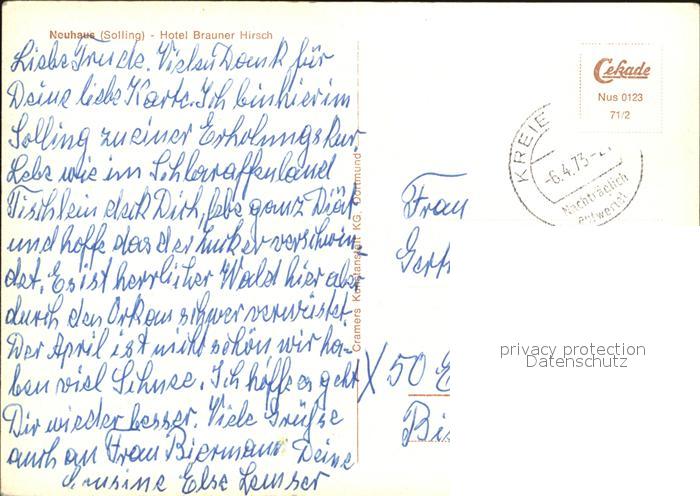 Neuhaus (Solling) - Hotel Brauner Hirsch
Liebe Trude. Vielen Dank für
Deine liebe Karte. Ich bin hier im
Solling zu einer Erholungskur.
Lebe wie im Schlaraffenland
Tischlein deck Dich, lebe ganz Diät
und hoffe das der Zucker verschwin-
det. Es ist herrlicher Wald hier aber
durch den Orkan schwer verwüstet.
Der April ist nicht schön wir ha-
ben viel Schnee. Ich hoffe es geht
Dir wieder besser. Viele Grüße
auch an Frau Biermann Deine
Cousine Else
Cramers Kunstanstalt KG. Dortmund
Cekade
Nus 0123
71/2
KREIE
-6.4.73-
Nachträglich
entwertet
Frau
X 50
privacy protection
Datenschutz